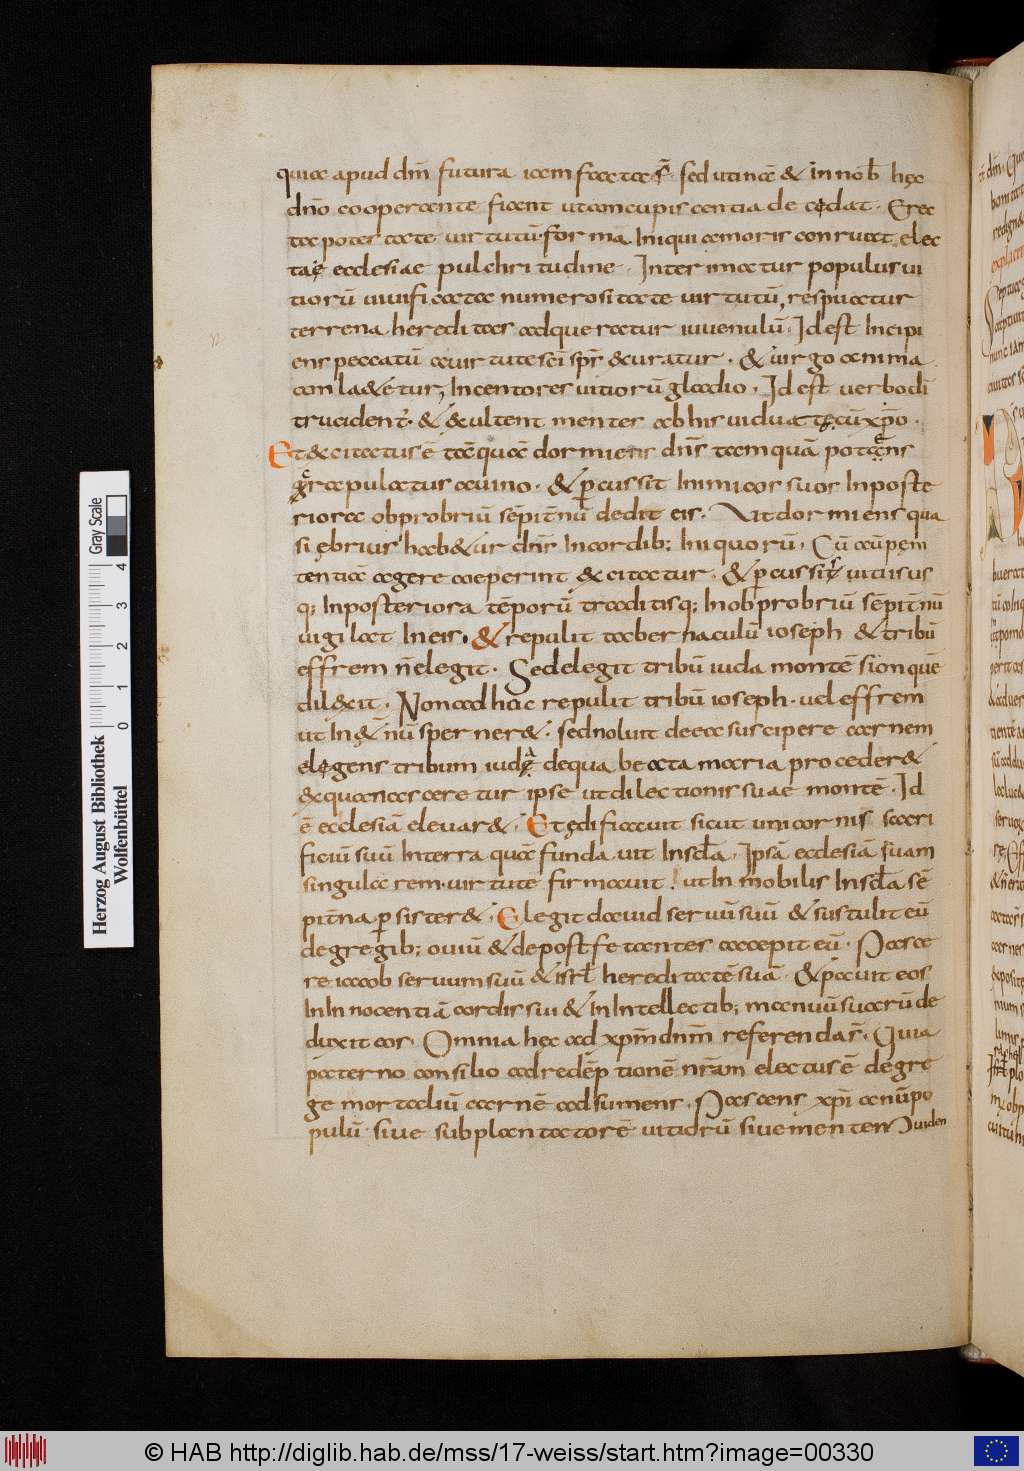 quia apud dm̄ futura iam facta sr̄ sed utinā & in nob̄ hęc
dn̄o cooperante fiant ut concupiscentia decedat. Erec
ta potestate uirtutū forma iniqui amoris conruat elec
tae ecclesiae pulchritudine. Interimatur populus ui
tiorū uiuificata numerositate uirtutū, respuatur
terrena hereditas adqueratur iuuenulū. Id est incipi
ens peccatū a uirtute sc̄i sp̄s &uratur. & uirgo anima
conla&etur, Incentores uitiorū gladio. Id est uerbo dī
trucident̄. & &ultent mentes ab his uiduatę cū xp̄o.
Et &citatus ē tāquā dormiens dn̄s tamquā potens
crapulatus a uino. & percussit inimicos suos In poste
riora obprobriū sēpit̄nū dedit eis. Ut dormiens qua
si ębrius hab&ur dn̄s In cordib; Iniquorū. Cū aū pęni
tentiā agere coeperint &citatur. & percussis uitiis us
q; In posteriora tēporū traditisq; In obprobriū sēpit̄nū
uigilat In eis. & repulit tabernaculū ioseph & tribū
effrem n̄ elegit. Sed elegit tribū iuda montē sion quē
dil&it. Non ad hoc repulit tribū ioseph uel effrem
ut In &̄nū sperner&. sed noluit de ea suscipere carnem
elegens tribum iudę de qua beata maria proceder&
& qua nasceretur ipse ut dilectionis suae montē. Id
ē ecclesiā eleuar&. Et ędificauit sicut unicornis sacri
ficiū suū In terra quā fundauit In sc̄la. Ipsā ecclesiā suam
singularem uirtute firmauit. ut Inmobilis In sc̄la sē
pit̄na persister&. Elegit dauid seruū suū & sustulit eū
de gregib; ouiū & de post fetantes accepit eū. Pasce
re iacob seruum suū & isrl̄ hereditatē suā. & pauit eos
In Innocentiā cordis sui & In Intellectib; manuū suarū de
duxit eos. Omnia hęc ad xp̄m dnm̄ referendas̄. Quia
paterno consilio ad redēptionē nr̄am electus ē de gre
ge mortaliū carnē adsumens. Pascens xp̄ianū po
pulū siue subplantatorē uitiorū siue mentem uiden
Herzog August Bibliothek
Wolfenbüttel
0 1 2 3 4
Gray Scale
© HAB http://diglib.hab.de/mss/17-weiss/start.htm?image=00330